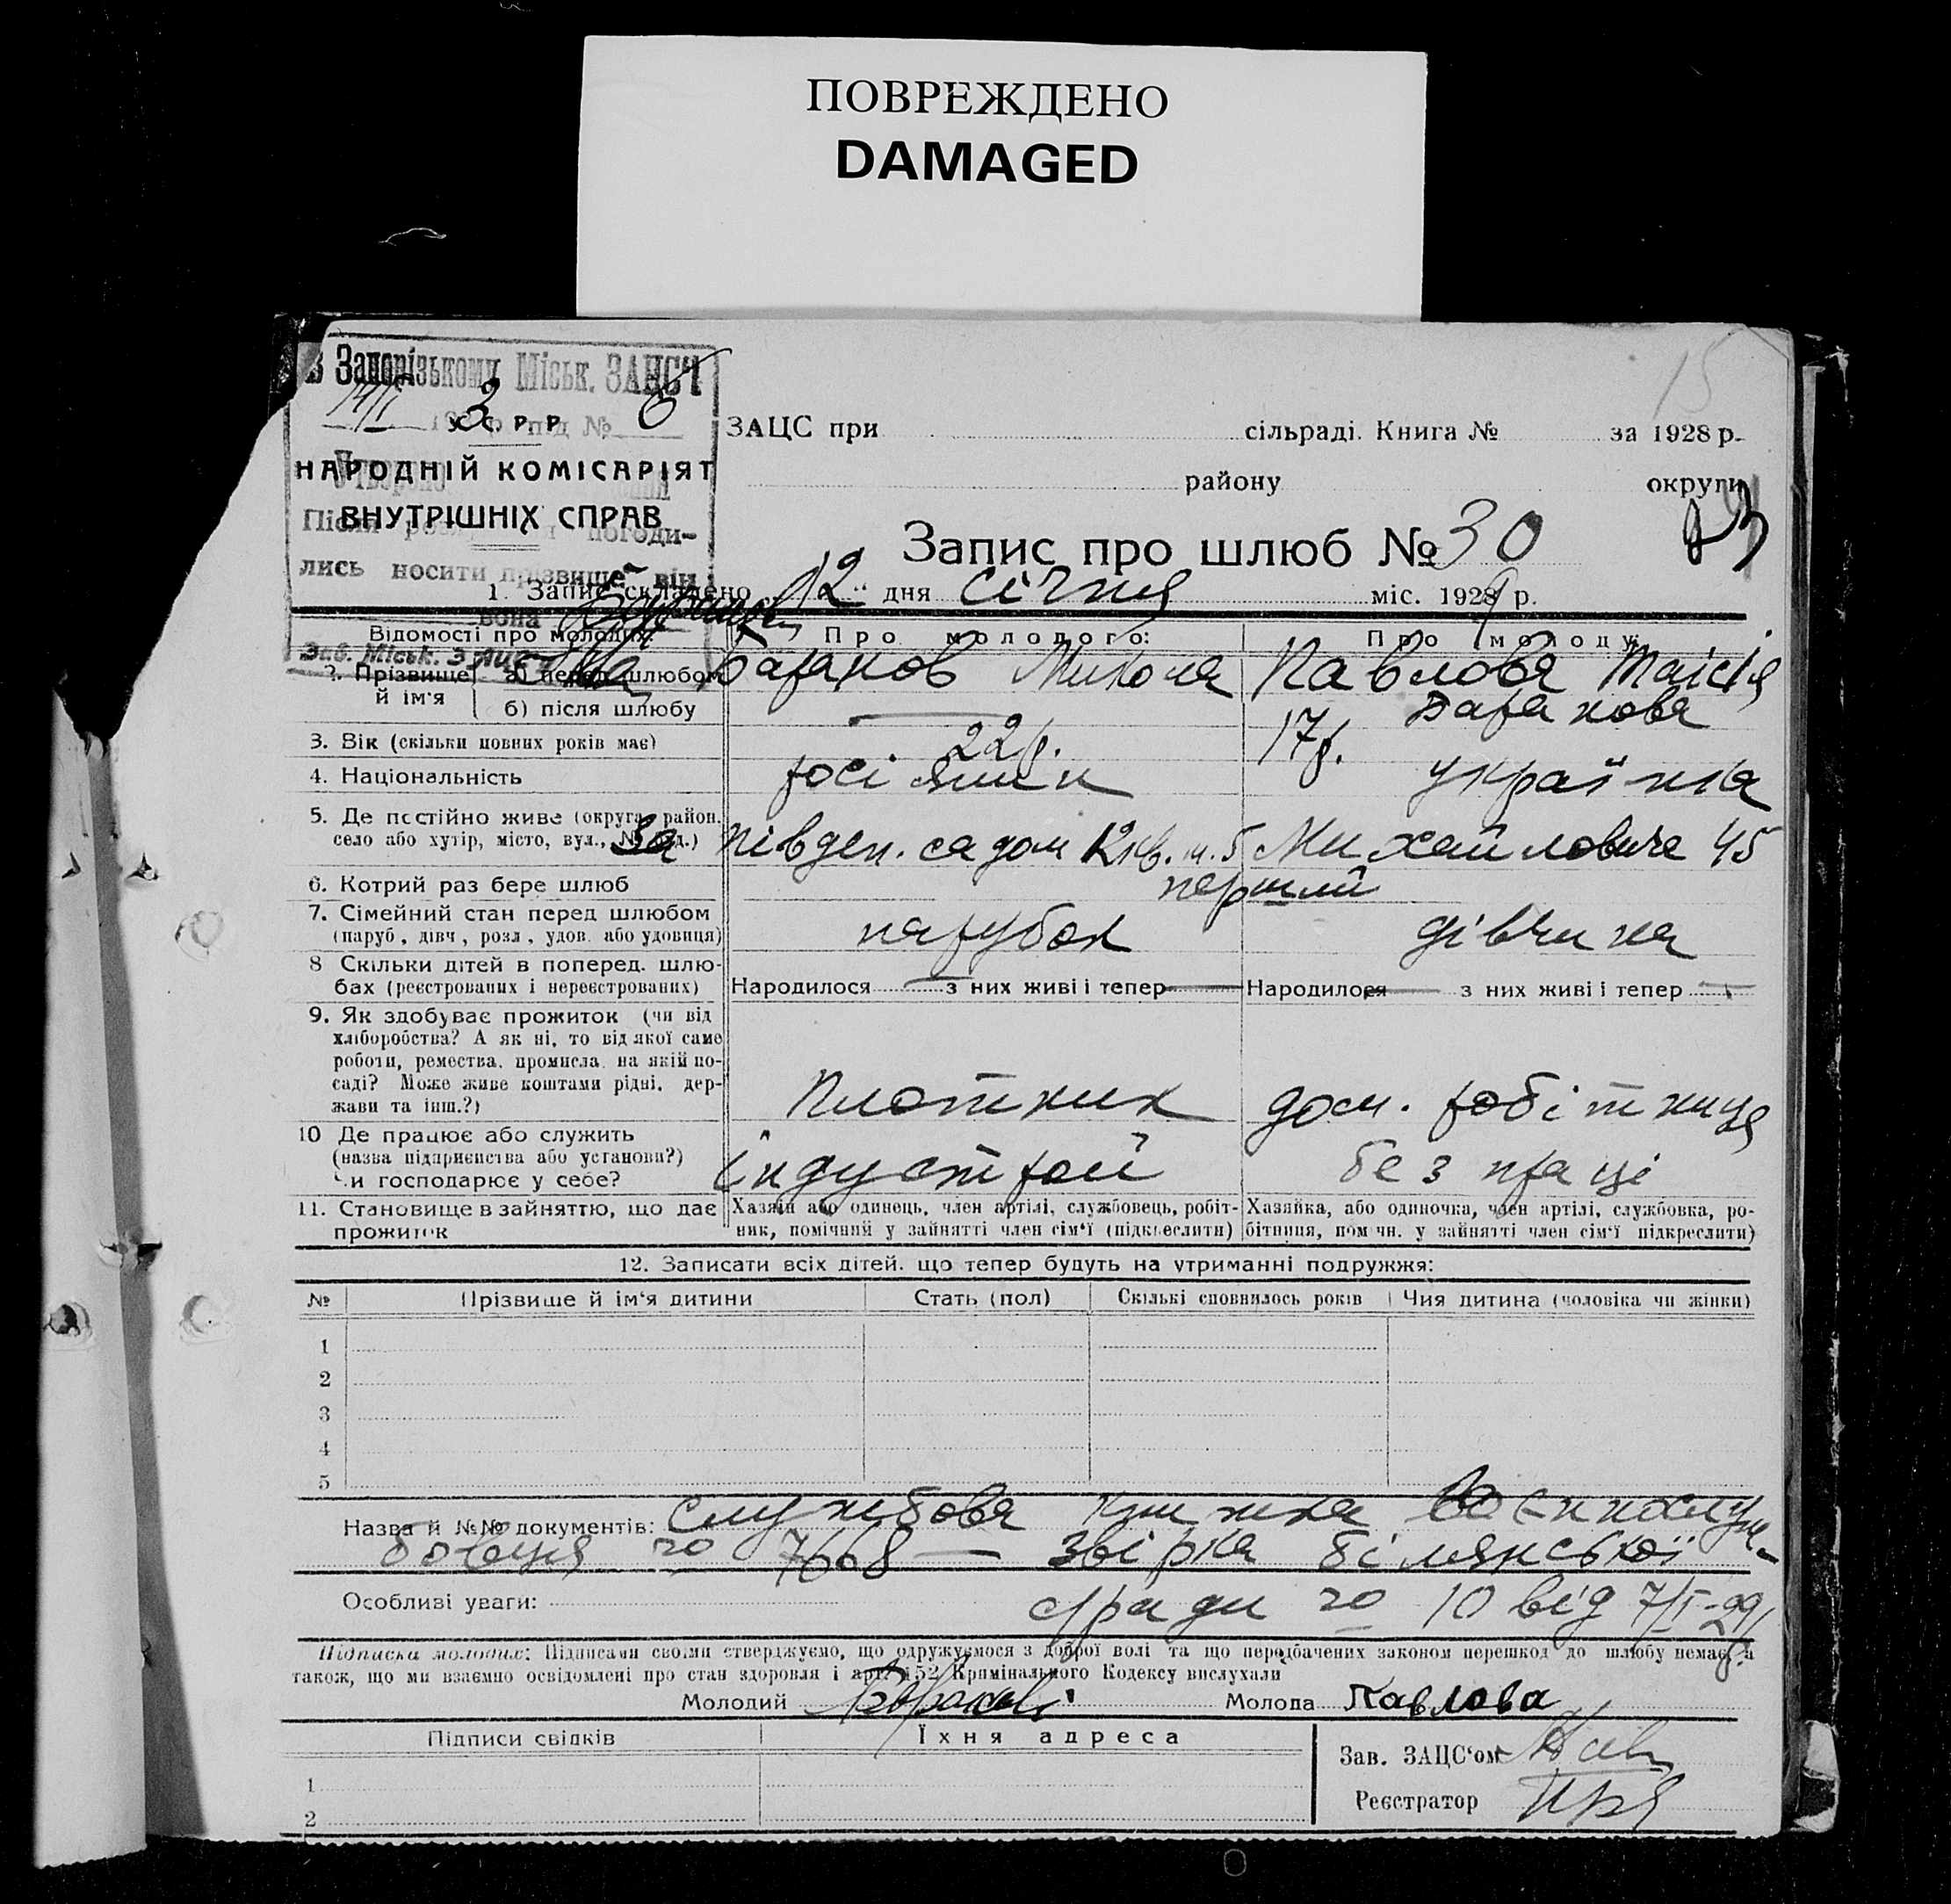 ПОВРЕЖДЕНО
DAMAGED
15
в Запорізькому Міськ. ЗАНСЧ
3 6
У. С. Р. Р. під №
ЗАЦС при сільраді. Книга № за 1928 р.
НАРОДНІЙ КОМІСАРІЯТ
району округи
ВНУТРІШНІХ СПРАВ
Після погоди-
Запис про шлюб № 30
лись носити прізвище він
1. Запис складено 12 " дня січня міс. 1929 р.
вона
Відомості про молодих Про молодого: Про молоду:
Зав. Міськ. ЗАЦС
2. Прізвище й ім'я а) перед шлюбом Баранов Микола Павлова Таісія
б) після шлюбу — Баранова
3. Вік (скільки повних років має) 22 р. 17 р.
4. Національність росіянин українка
5. Де постійно живе (округа, район,
село або хутір, місто, вул., № буд.) За півден. садом 12 кв. Михайловича 45
6. Котрий раз бере шлюб перший
7. Сімейний стан перед шлюбом
(паруб., дівч., розл., удов. або удовиця) парубок дівчина
8 Скільки дітей в поперед. шлю-
бах (реєстрованих і нереєстрованих) Народилося — з них живі і тепер — Народилося — з них живі і тепер —
9. Як здобуває прожиток (чи від
хліборобства? А як ні, то від якої саме
роботи, ремества, промисла, на якій по-
саді? Може живе коштами рідні, дер-
жави та інш.?) Плотник дом. робітниця
10 Де працює або служить
(назва підприємства або установи?)
Чи господарює у себе? Індустрой без праці
11. Становище в зайняттю, що дає
прожиток
Хазяїн або одинець, член артілі, службовець, робіт-
ник, помічний у зайнятті член сім'ї (підкреслити)
Хазяйка, або одиночка, член артілі, службовка, ро-
бітниця, пом чн. у зайнятті член сім'ї підкреслити)
12. Записати всіх дітей, що тепер будуть на утриманні подружжя:
№ Прізвище й ім'я дитини Стать (пол) Скількі сповнилось років Чия дитина (чоловіка чи жінки)
1
2
3
4
5
Назва й №№ документів: службова книжка Воєннослуж-
бовця № 7668 — Звірка білянської
Особливі уваги: с/ради № 10 від 7/I-29 р.
Підписка молодих: Підписами своїми стверджуємо, що одружуємося з доброї волі та що передбачених законом перешкод до шлюбу немає, а
також, що ми взаємно освідомлені про стан здоровля і арт. 152 Кримінального Кодексу вислухали
Молодий Баранов Молода Павлова
Підписи свідків Їхня адреса
Зав. ЗАЦС'ом
1
Реєстратор
2